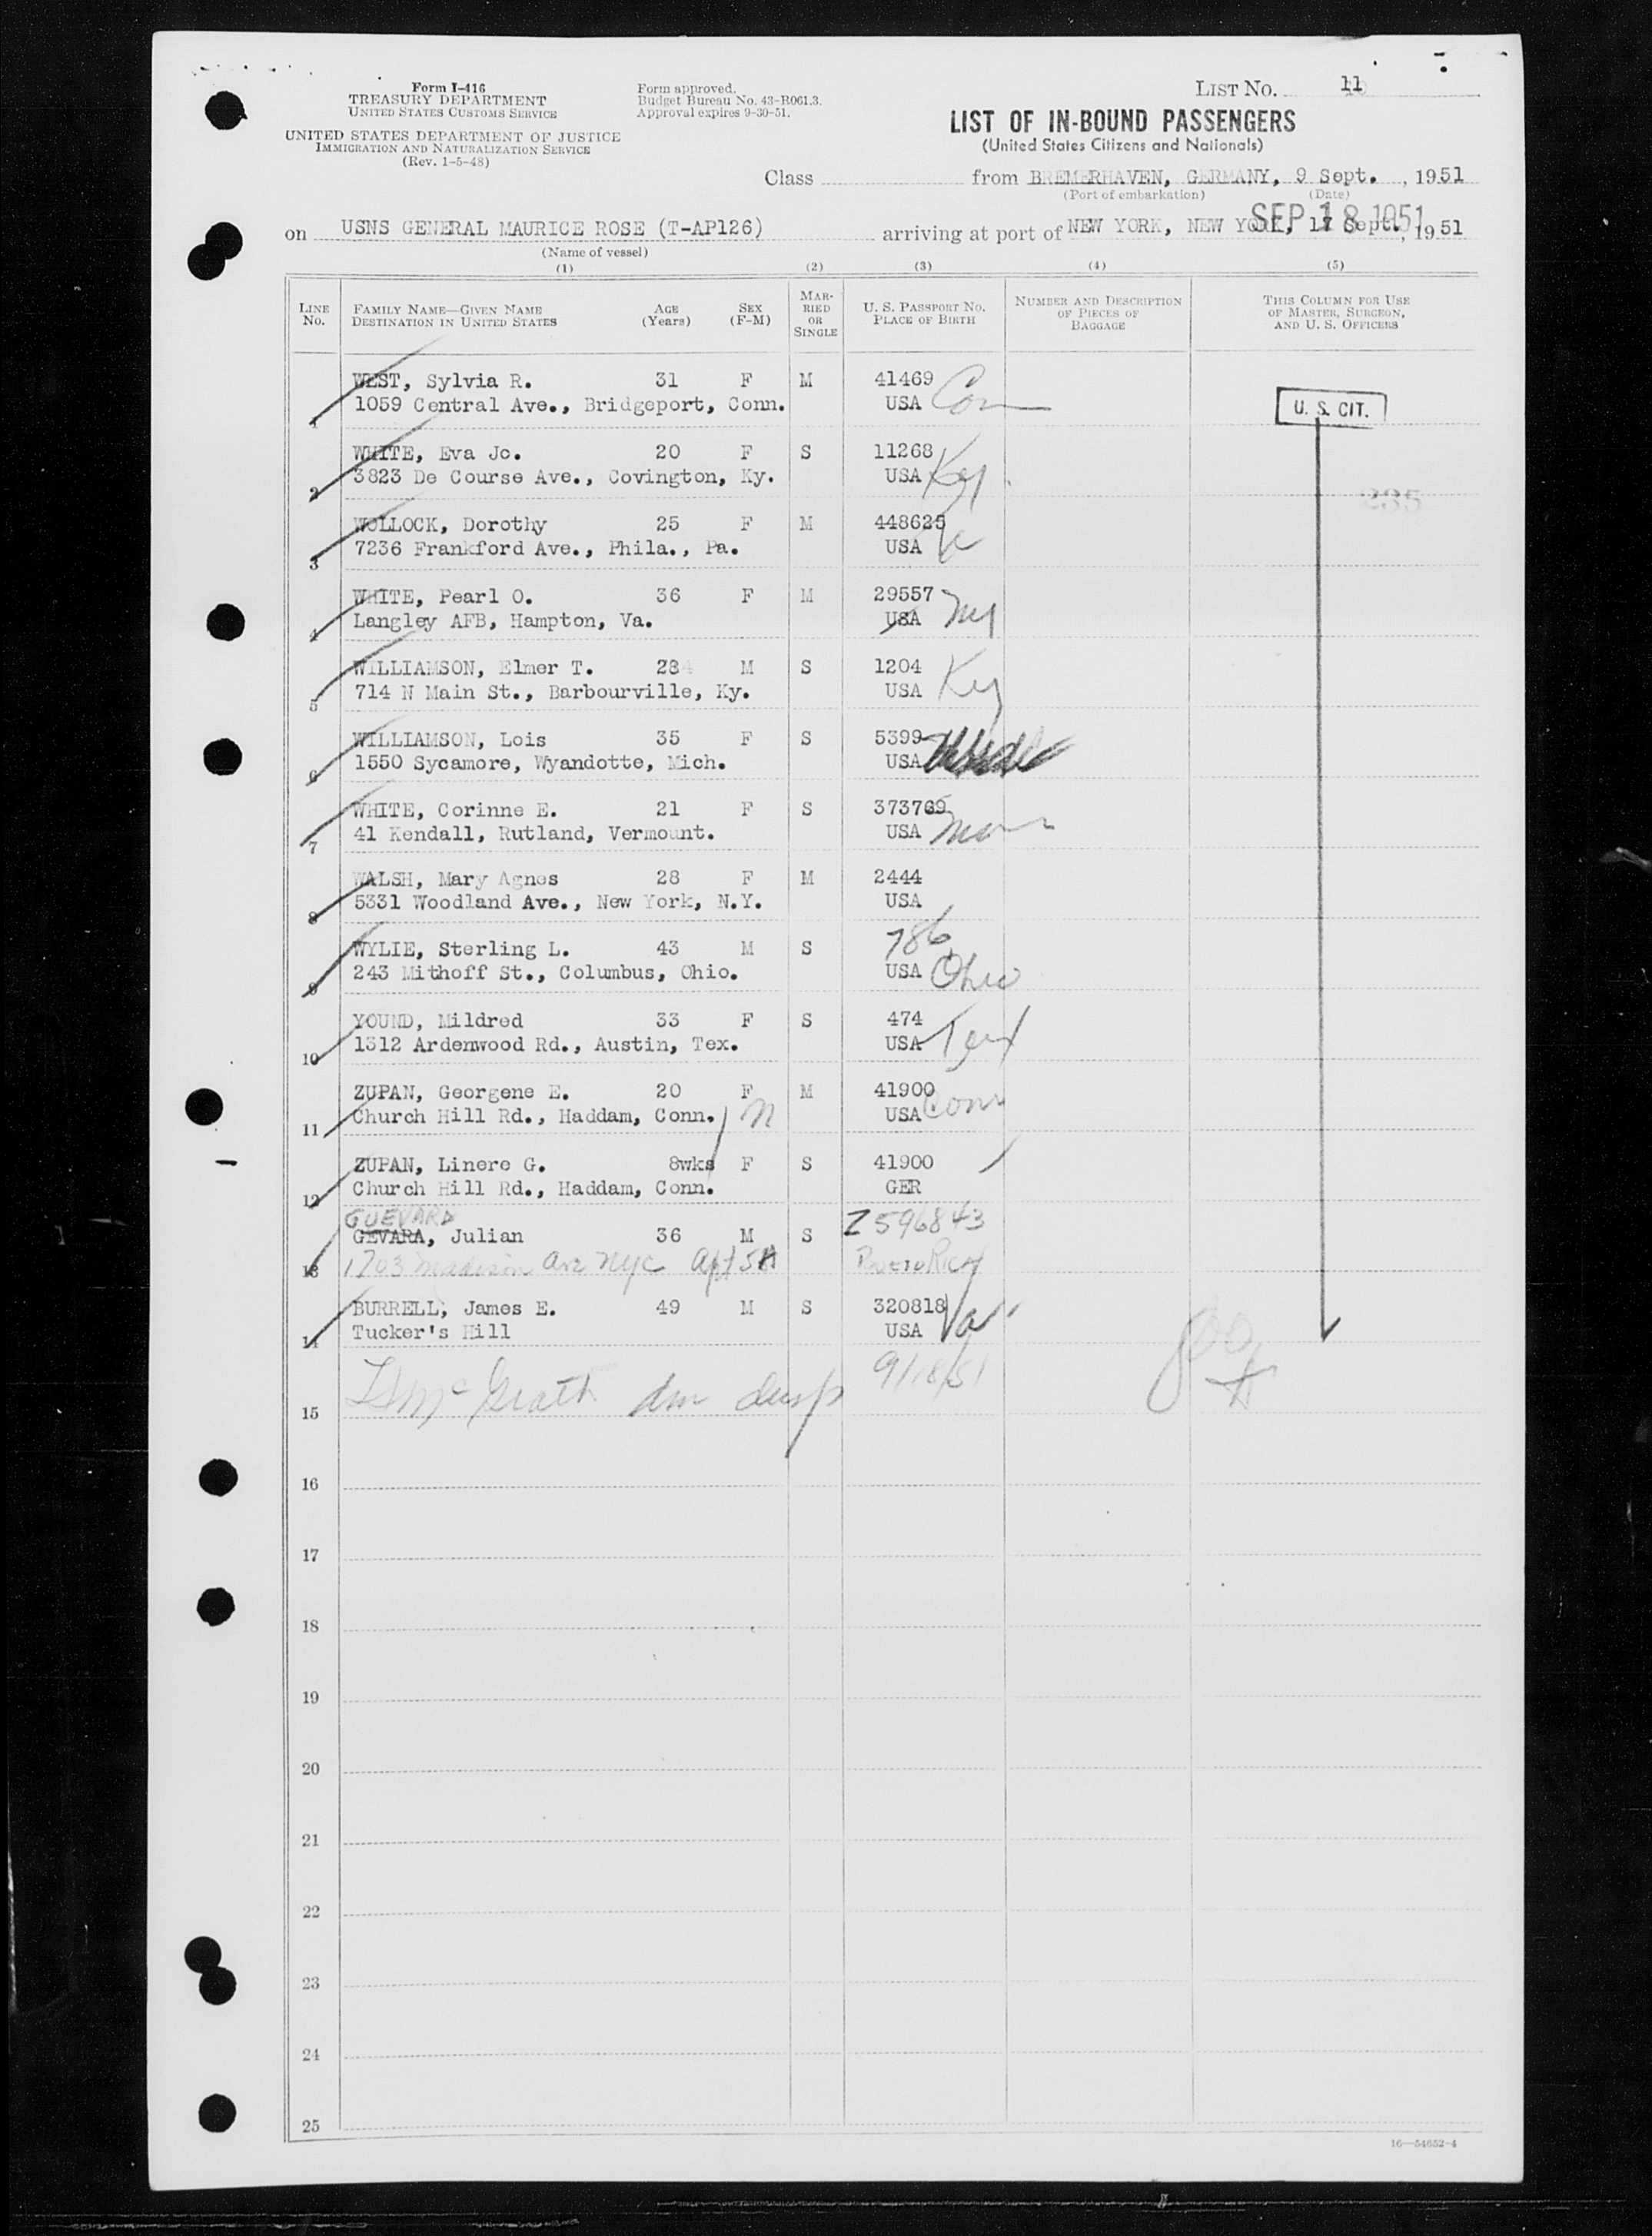 Form I-416
TREASURY DEPARTMENT
UNITED STATES CUSTOMS SERVICE
UNITED STATES DEPARTMENT OF JUSTICE
IMMIGRATION AND NATURALIZATION SERVICE
(Rev. 1-5-48)
Form approved.
Budget Bureau No. 43-R061.3.
Approval expires 9-30-51.
LIST NO. 11
LIST OF IN-BOUND PASSENGERS
(United States Citizens and Nationals)
Class from BREMERHAVEN, GERMANY, 9 Sept., 1951
(Port of embarkation) (Date)
on USNS GENERAL MAURICE ROSE (T-AP126) arriving at port of NEW YORK, NEW YORK, 17 Sept., 1951
SEP 18 1951
(Name of vessel)
(1) (2) (3) (4) (5)
LINE NO. FAMILY NAME—GIVEN NAME DESTINATION IN UNITED STATES AGE (Years) SEX (F-M) MARRIED OR SINGLE U. S. PASSPORT NO. PLACE OF BIRTH NUMBER AND DESCRIPTION OF PIECES OF BAGGAGE THIS COLUMN FOR USE OF MASTER, SURGEON, AND U. S. OFFICERS
WEST, Sylvia R. 31 F M 41469
1 1059 Central Ave., Bridgeport, Conn. USA Con U. S. CIT.
WHITE, Eva Jo. 20 F S 11268
2 3823 De Course Ave., Covington, Ky. USA Ky
235
WOLLOCK, Dorothy 25 F M 448625
3 7236 Frankford Ave., Phila., Pa. USA
WHITE, Pearl O. 36 F M 29557
4 Langley AFB, Hampton, Va. USA NY
WILLIAMSON, Elmer T. 28 M S 1204
5 714 N Main St., Barbourville, Ky. USA Ky
WILLIAMSON, Lois 35 F S 5399
6 1550 Sycamore, Wyandotte, Mich. USA
WHITE, Corinne E. 21 F S 373769
7 41 Kendall, Rutland, Vermount. USA
WALSH, Mary Agnes 28 F M 2444
8 5331 Woodland Ave., New York, N.Y. USA
WYLIE, Sterling L. 43 M S 786
9 243 Mithoff St., Columbus, Ohio. USA Ohio
YOUND, Mildred 33 F S 474
10 1312 Ardenwood Rd., Austin, Tex. USA Tex
ZUPAN, Georgene E. 20 F M 41900
11 Church Hill Rd., Haddam, Conn. USA Conn
ZUPAN, Linere G. 8wks F S 41900
12 Church Hill Rd., Haddam, Conn. GER
GUEVARA
GEVARA, Julian 36 M S Z596843
13 1703 Madison Ave NYC Apt 5A Puerto Rico
BURRELL, James E. 49 M S 320818
14 Tucker's Hill USA Va
McGrath 9/18/51
15
16
17
18
19
20
21
22
23
24
25
16—54652-4